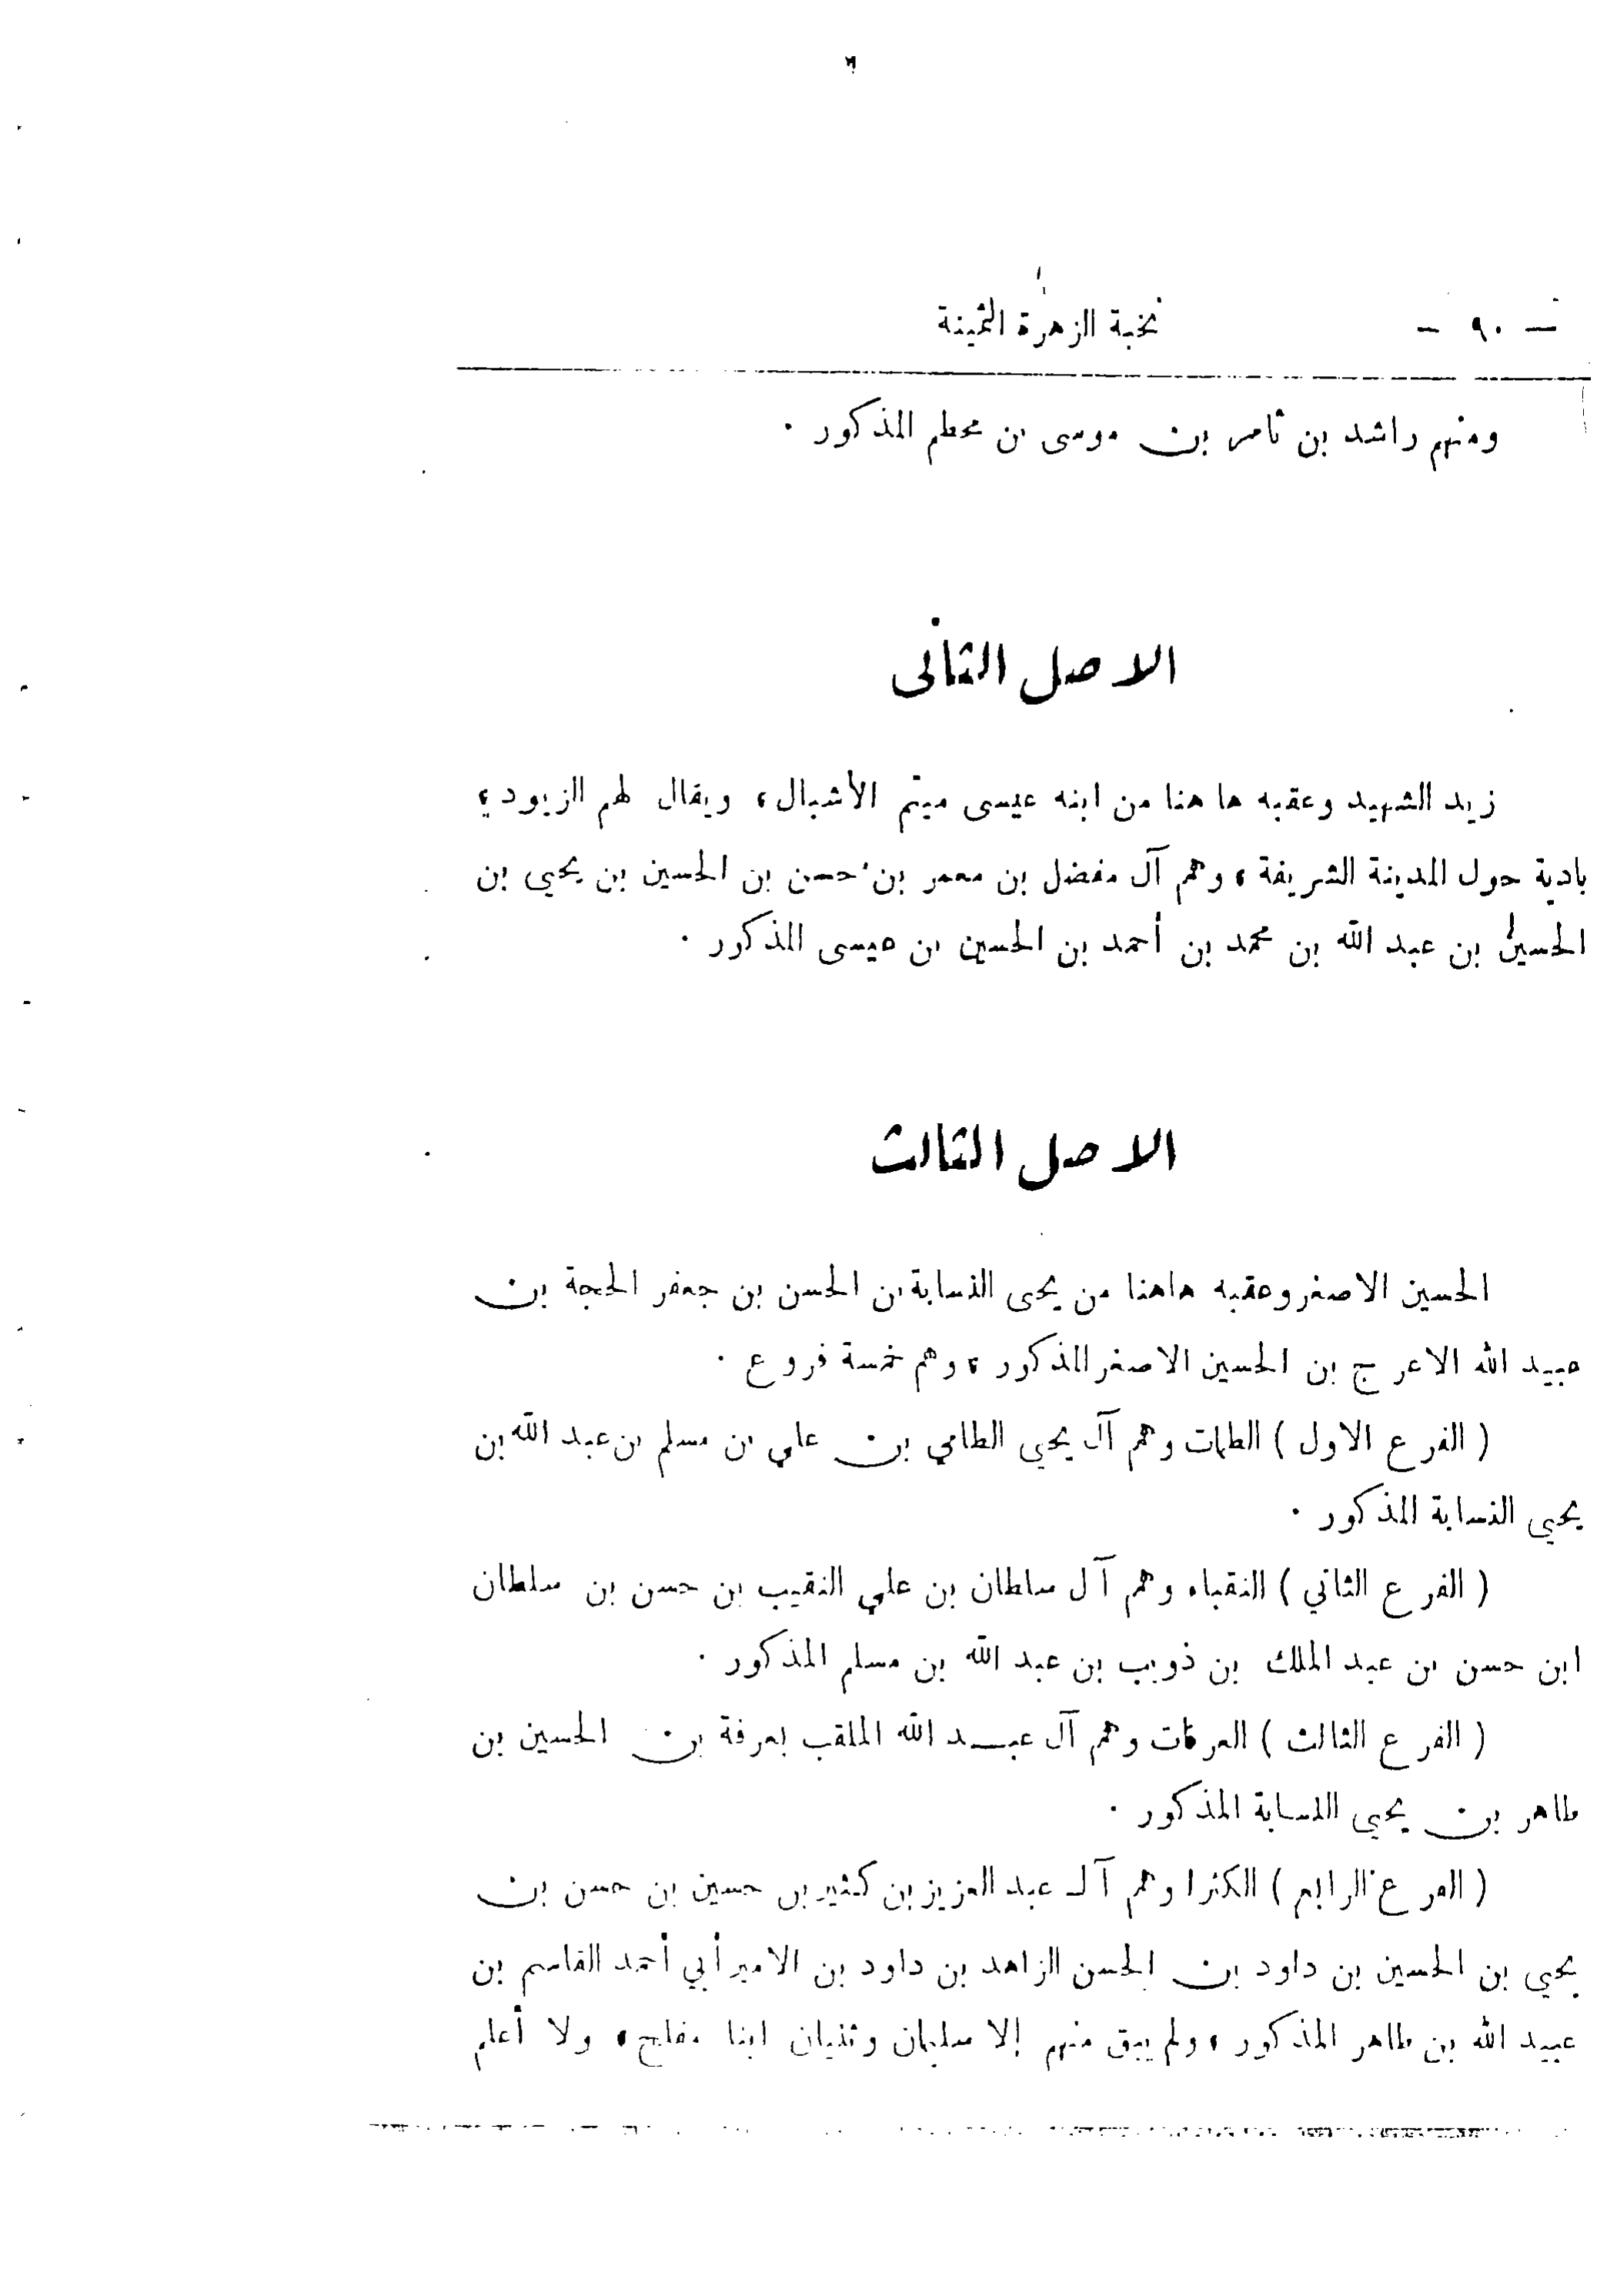 — ٩٠ — نخبة الزهرة الثمينة
ومنهم راشد بن ثامر بن موسى بن محطم المذكور .
الاصل الثانى
زيد الشهيد وعقبه ها هنا من ابنه عيسى ميتم الأشبال ، ويقال لهم الزيود ؛
بادية حول المدينة الشريفة ، وهم آل مفضل بن معمر بن حسن بن الحسين بن يحيى بن
الحسين بن عبد الله بن محمد بن أحمد بن الحسين بن عيسى المذكور .
الاصل الثالث
الحسين الاصغر وعقبه هاهنا من يحيى النسابة بن الحسن بن جعفر الحجة بن
عبيد الله الاعرج بن الحسين الاصغر المذكور ، وهم خمسة فروع .
( الفرع الاول ) الطمات وهم آل يحيى الطامي بن علي بن مسلم بن عبد الله بن
يحيى النسابة المذكور .
( الفرع الثاني ) النقباء وهم آل سلطان بن علي النقيب بن حسن بن سلطان
ابن حسن بن عبد الملك بن ذويب بن عبد الله بن مسلم المذكور .
( الفرع الثالث ) العرفات وهم آل عبد الله الملقب بعرفة بن الحسين بن
طاهر بن يحيى النسابة المذكور .
( الفرع الرابع ) الكثرا وهم آل عبد العزيز بن كثير بن حسين بن حسن بن
يحيى بن الحسين بن داود بن الحسن الزاهد بن داود بن الامير أبي أحمد القاسم بن
عبيد الله بن طاهر المذكور ، ولم يبق منهم إلا سليمان وثنيان ابنا مفلح ، ولا أعلم